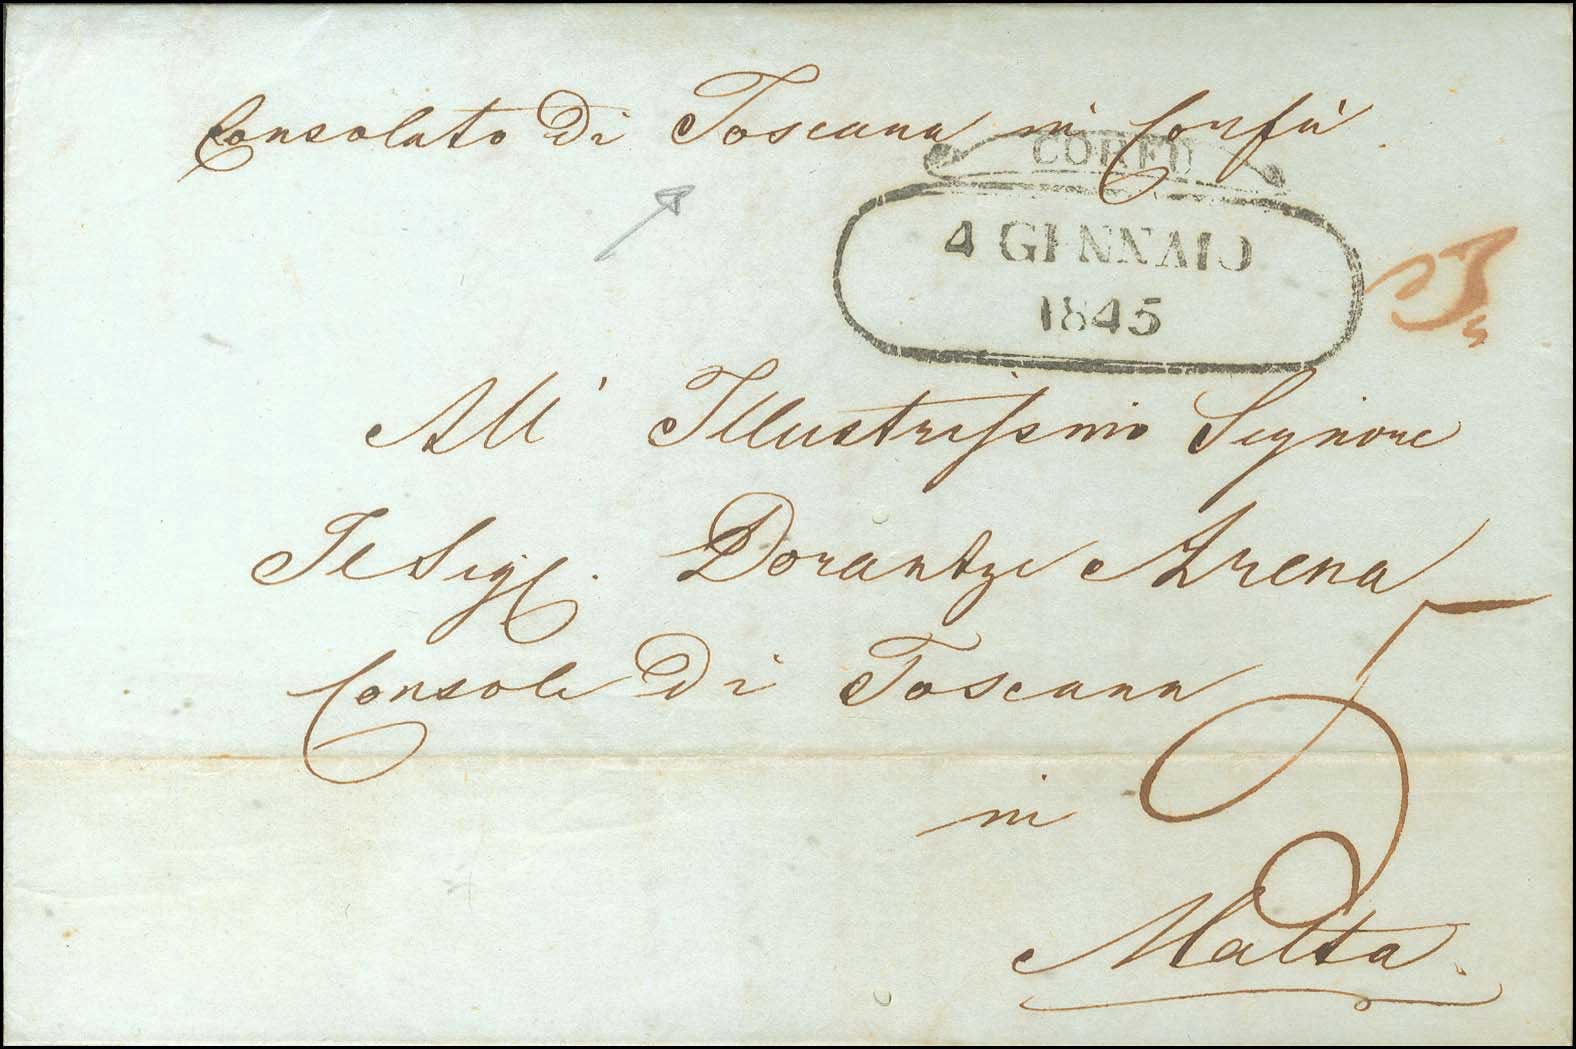 Consolato Di Toscana in Corfù.
CORFU
4 GENNAIO
1845
All' Illustrissimo Signore
Il Sigr. Dorantze Arena
Console Di Toscana
in
5
Malta.